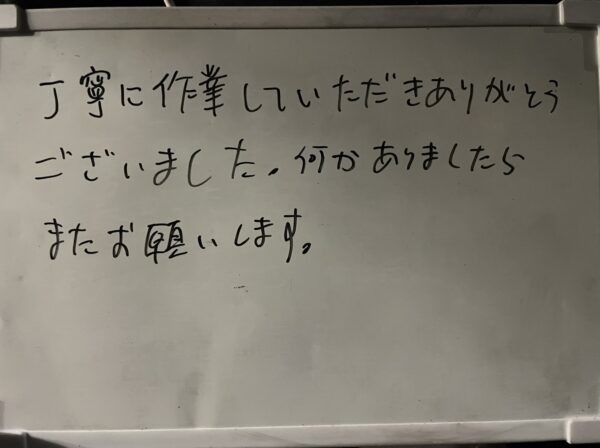 丁寧に作業していただきありがとう
ございました。何かありましたら
またお願いします。